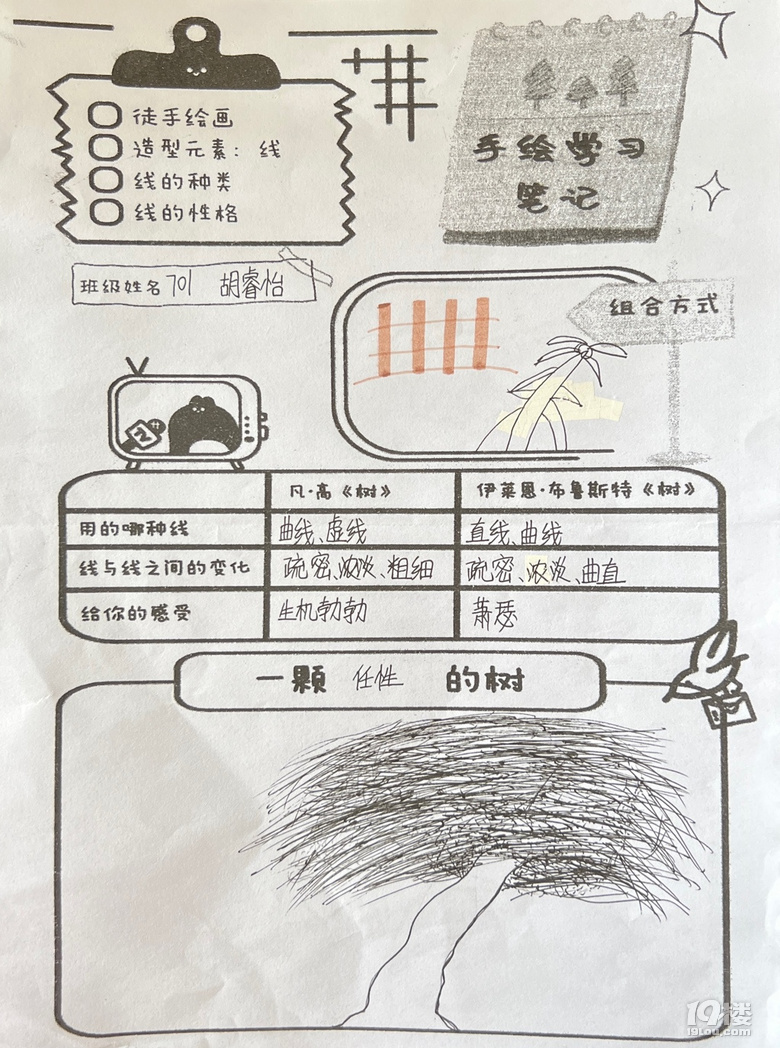 徒手绘画
造型元素：线
线的种类
线的性格
手绘学习
笔记
班级姓名 701 胡睿怡
组合方式
凡·高《树》 伊莱恩·布鲁斯特《树》
用的哪种线 曲线、虚线 直线、曲线
线与线之间的变化 疏密、浓淡、粗细 疏密、浓淡、曲直
给你的感受 生机勃勃 萧瑟
一颗 任性 的树
19楼
19lou.com